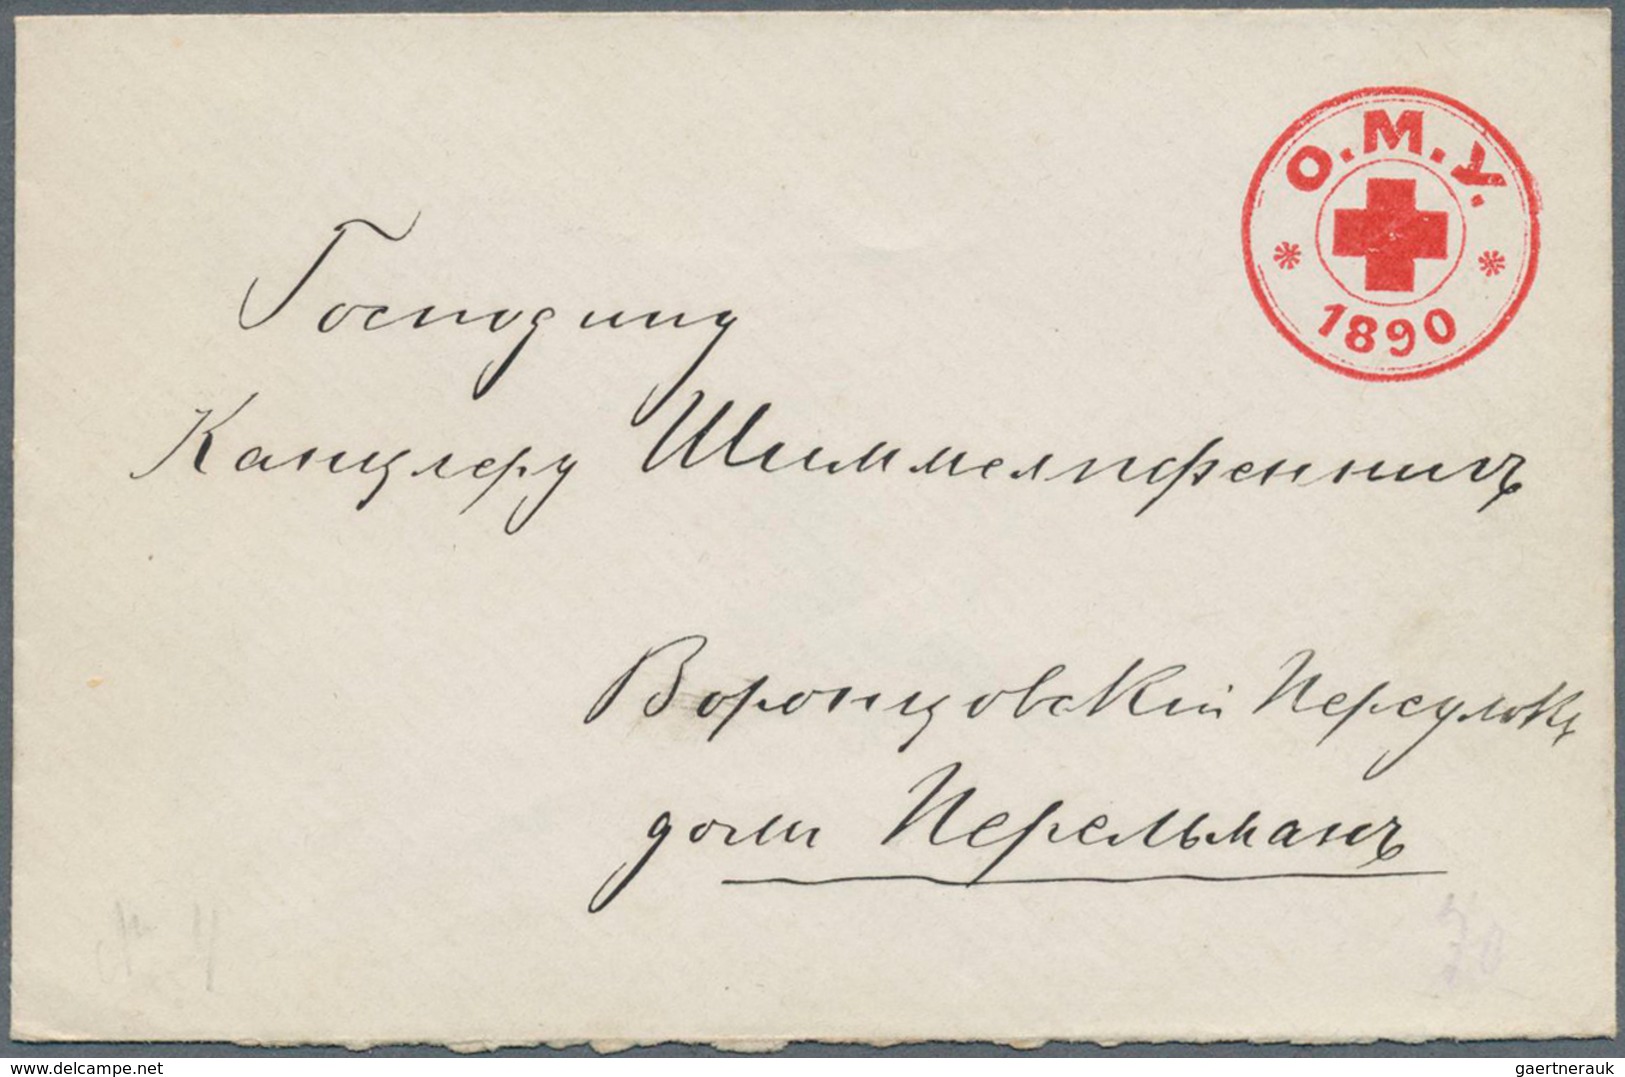 О.М.У.
1890
Господину
Канцлеру Шиммелпфеннигъ
Воронцовскій Переулокъ
домъ Перельманъ
70
www.delcampe.net
gaertnerauk